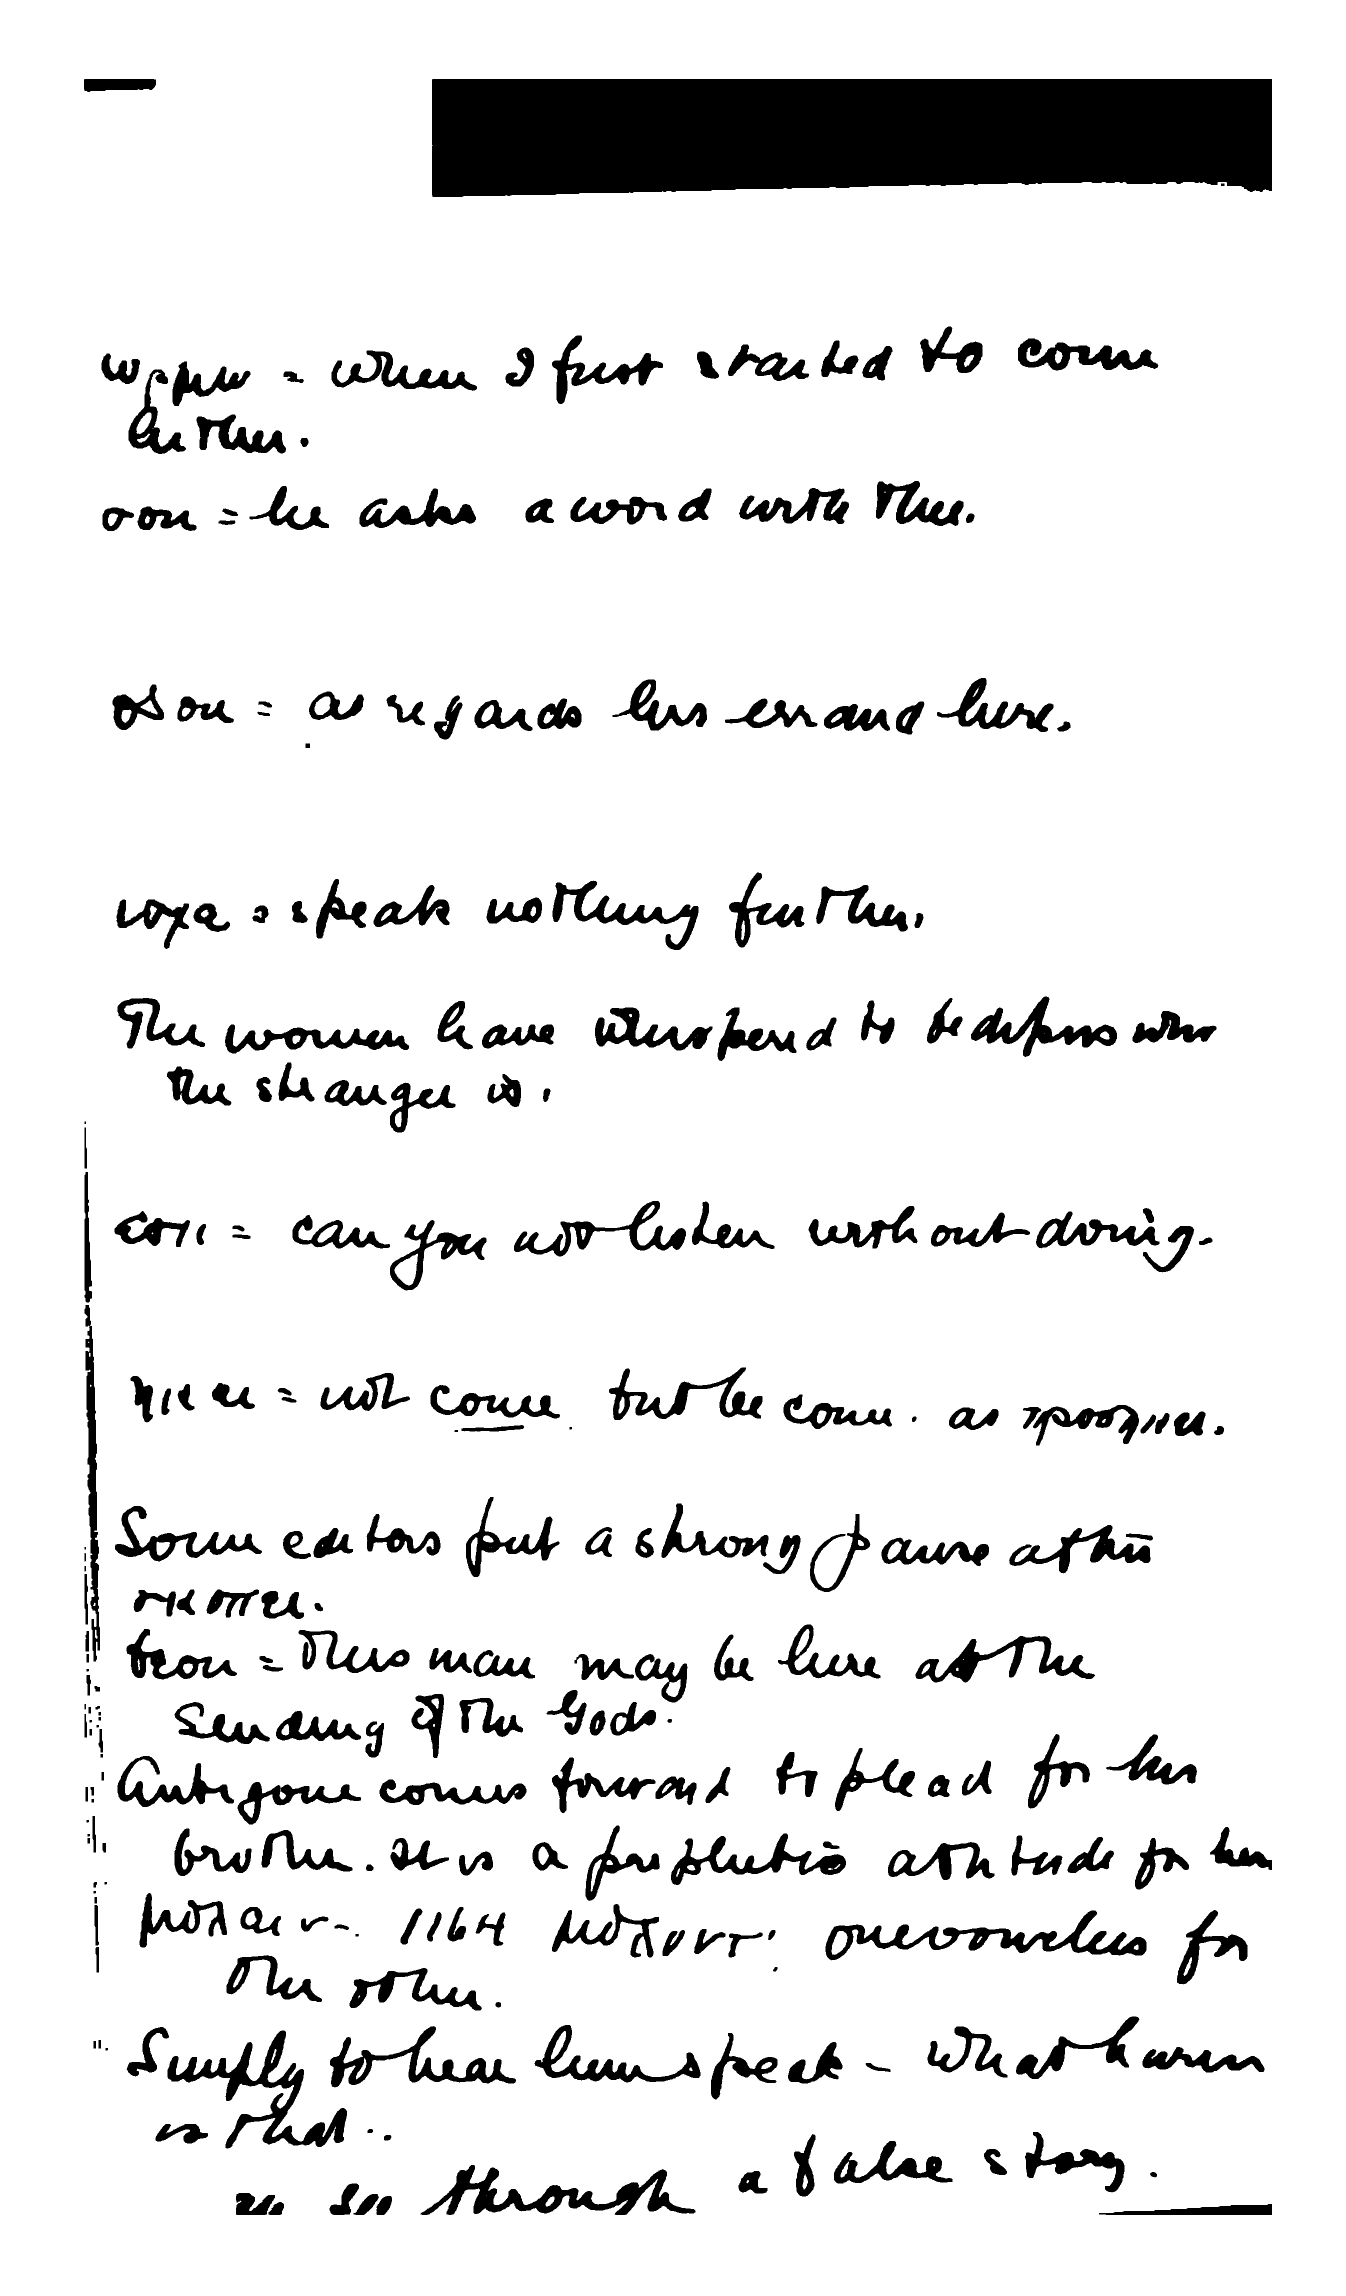 ωρμω = when I first started to come
hither.
σοι = he asks a word with thee.
as regards his errand here.
speak nothing further.
The women have whispered to Oedipus who
the stranger is.
= can you not listen without doing.
ηκει = not come but be come. as προσηκει.
Some editors put a strong pause at this
σκοπει.
θεου = This man may be here at the
sending of the Gods.
Antigone comes forward to plead for her
brother. It is a prophetic attitude for her
μολειν - 1164 μολοντ' one vowel is for
the other.
Simply to hear him speak - what harm
is that..
through a false story.